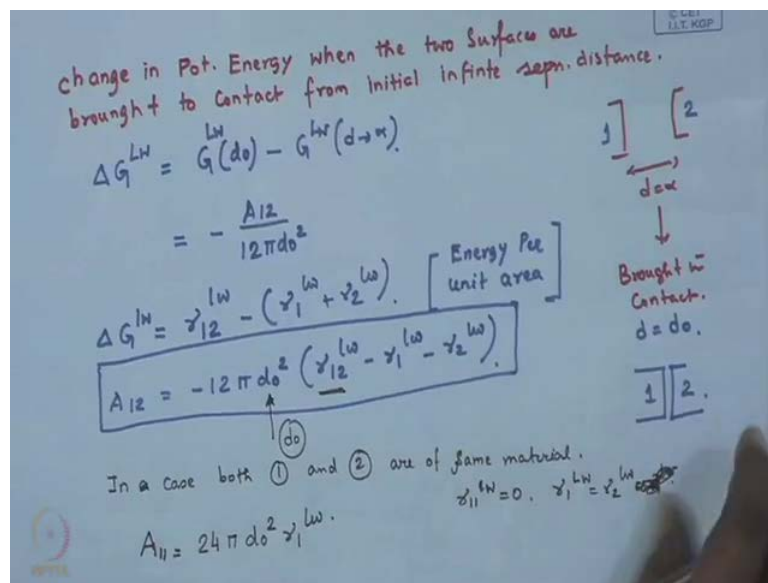 © CET
I.I.T. KGP
change in Pot. Energy when the two Surfaces are
brounght to Contact from initial infinte sepn. distance.
ΔG^LW = G^LW(d₀) − G^LW(d→α).
= − A₁₂ / 12πd₀²
ΔG^LW = γ₁₂^LW − (γ₁^LW + γ₂^LW). [Energy Per
unit area]
A₁₂ = −12πd₀² (γ₁₂^LW − γ₁^LW − γ₂^LW).
d₀
1] [2
d=α
Brought in
Contact.
d=d₀.
1 2.
In a case both ① and ② are of same material.
γ₁₁^LW = 0. γ₁^LW = γ₂^LW
A₁₁ = 24πd₀² γ₁^LW.
NPTEL